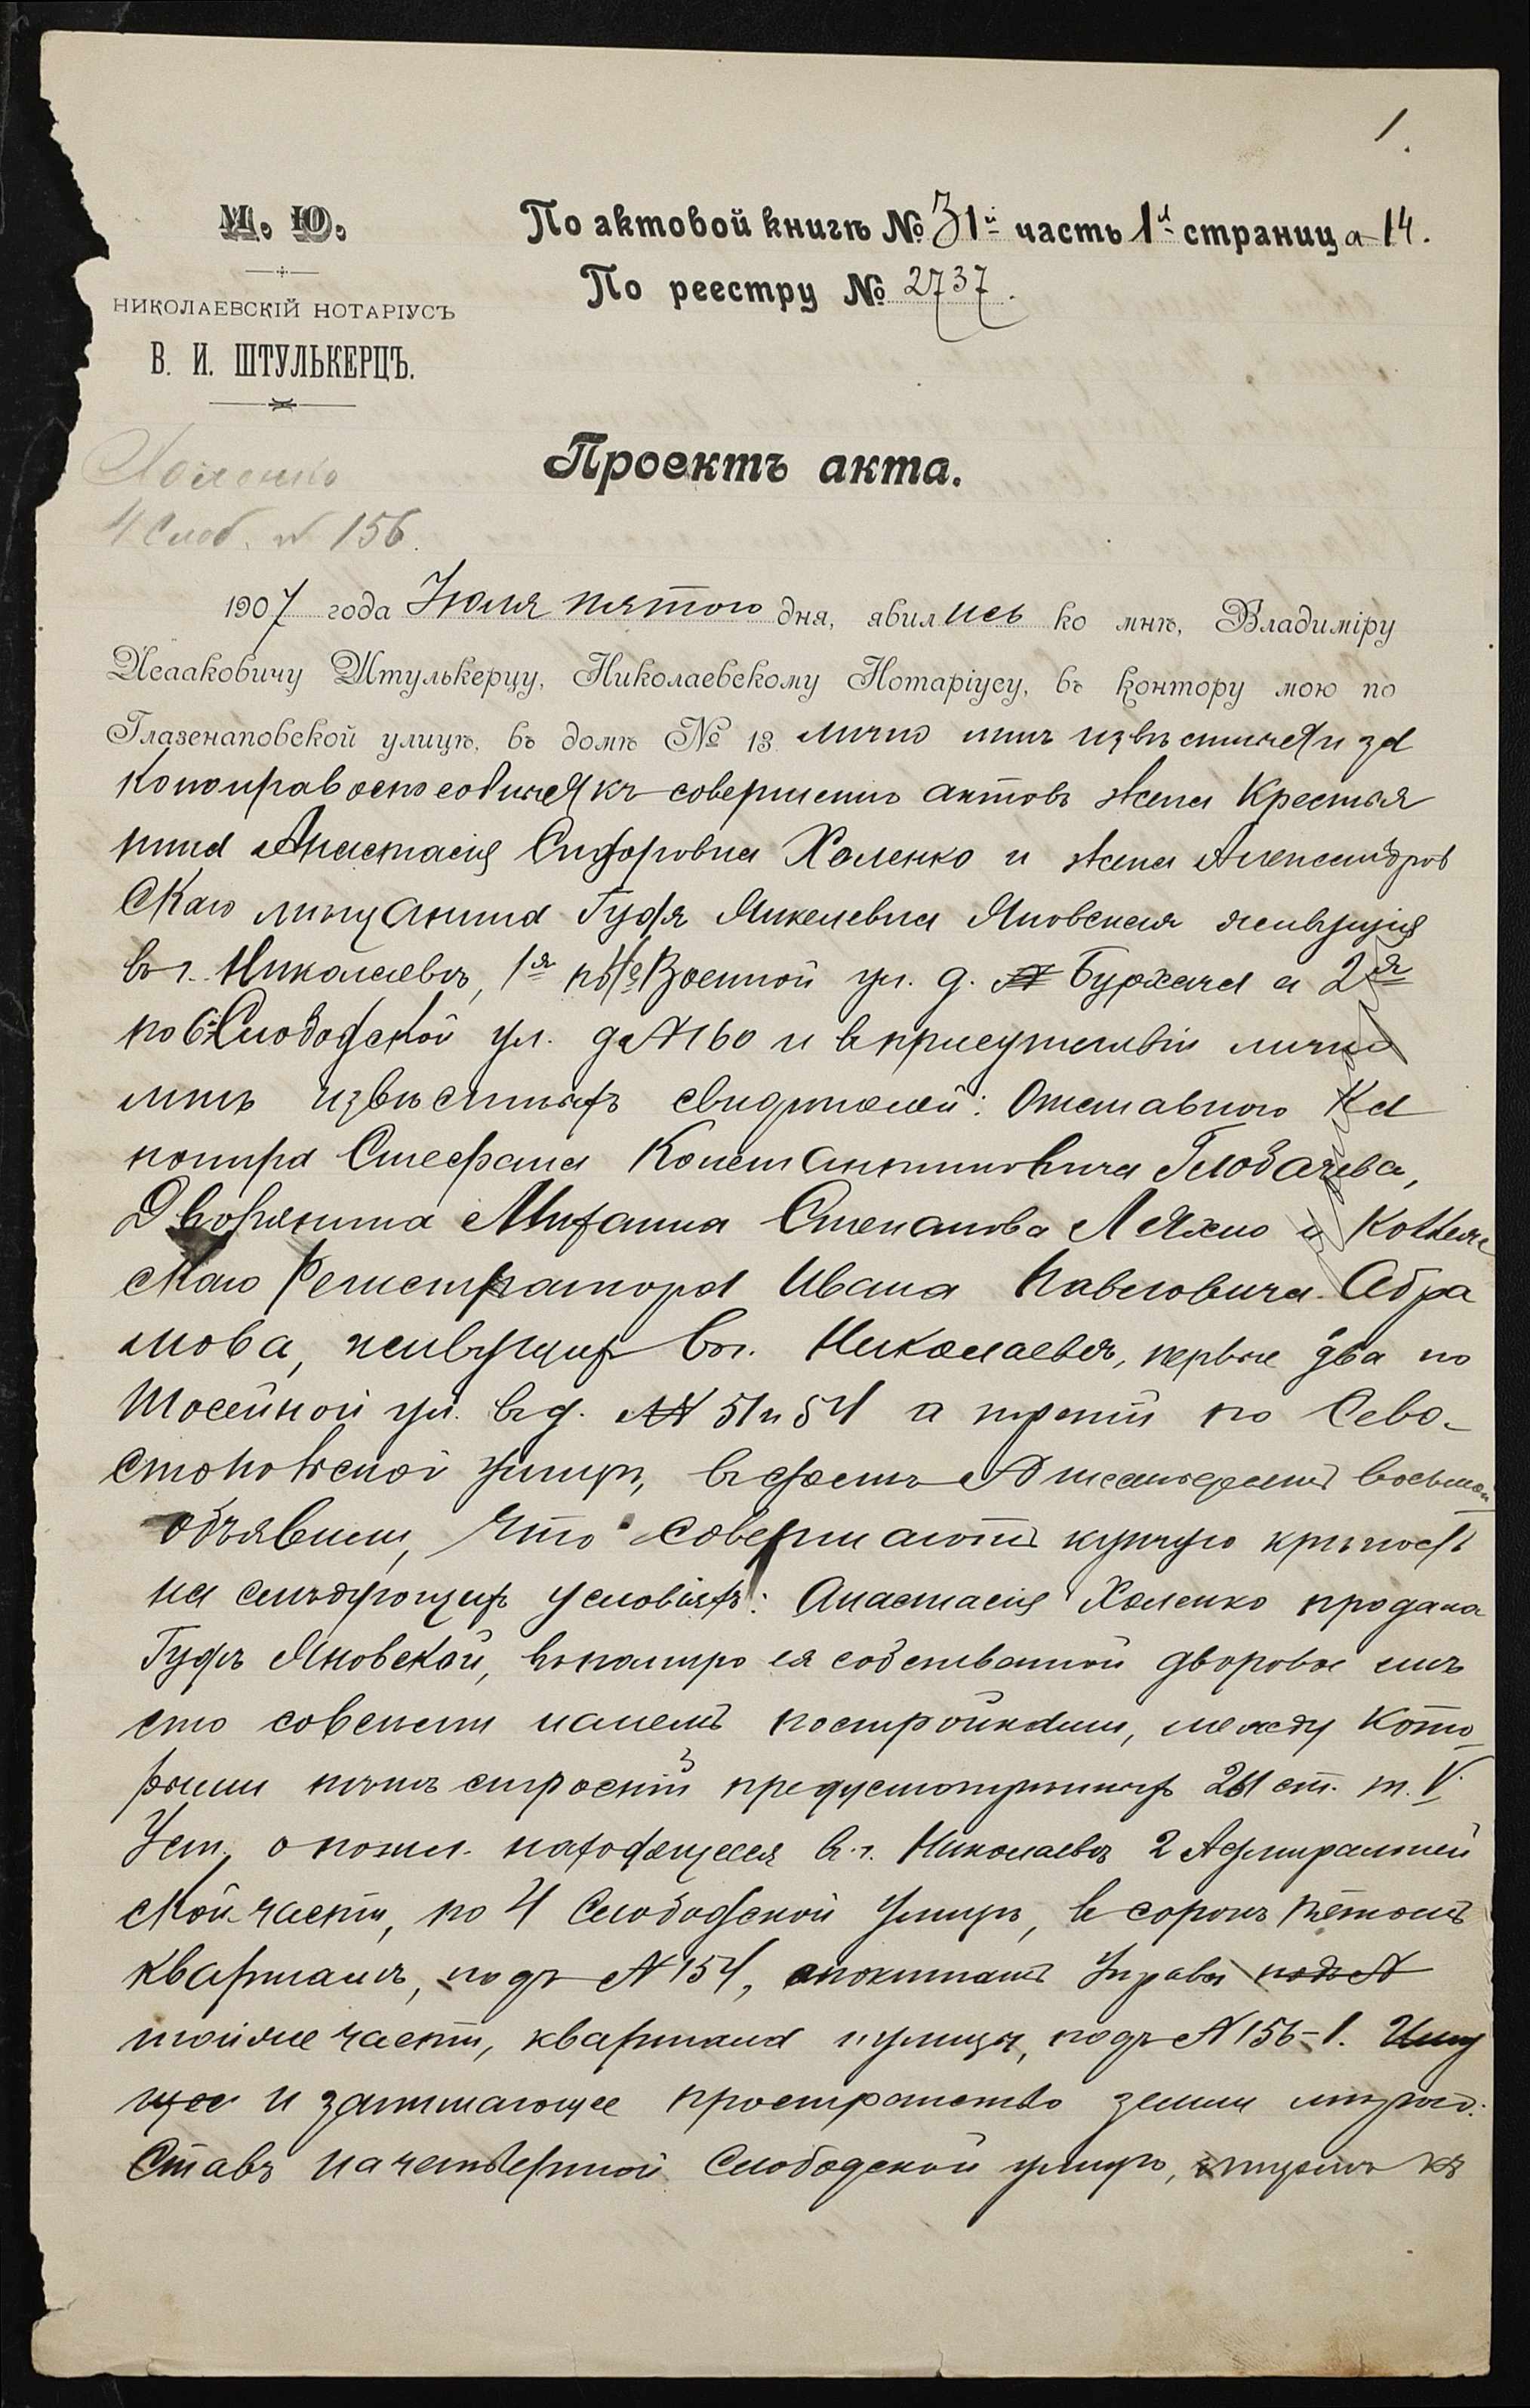 1.
М. Ю.
НИКОЛАЕВСКІЙ НОТАРІУСЪ
В. И. ШТУЛЬКЕРЦЪ.
По актовой книгѣ № 31й часть 1я страница 14.
По реестру № 2737.
Проектъ акта.
Холенко
4 Слоб. № 156.
1907 года Іюля пятого дня, явились ко мнѣ, Владиміру
Исааковичу Штулькерцу, Николаевскому Нотаріусу, въ контору мою по
Глазенаповской улицѣ, въ домѣ № 13 лично мнѣ извѣстныя и за
конноправоспособныя къ совершенію актовъ жена Крестья
нина Анастасія Сидоровна Холенко и жена Александров
скаго мѣщанина Гудя Янкелевна Яновская живущія
въ г. Николаевѣ, 1я по Военной ул. д. а 2я
по 6 Слободской ул. д № 160 и в присутствіи лично
мнѣ извѣстныхъ свидѣтелей: Отставного Ка
нонира Стефана Константиновича Глобачева,
Дворянина Михаила Степанова Ляхно и Коллеж
скаго Регистратора Ивана Павловича Абра
мова, живущихъ въ г. Николаевѣ, первые два по
Шосейной ул. в д. № 51 и 54 а третій по Сево-
стопольской улицѣ, в домѣ восьмой
объявили, что совершаютъ купчую крѣпость
на слѣдующихъ условіяхъ: Анастасія Холенко продала
Гудѣ Яновской, собственной дворовое мѣ
сто со всѣми на немъ постройками, между кото
рыми нѣтъ строеній предусмотрѣнныхъ ст. т. V.
Уст. о пошл. находящееся в г. Николаевѣ 2 Адмиралтей
ской части, по 4 Слободской улицѣ, в сорокъ пятомъ
кварталѣ, подъ № 154, Управы подъ №
той же части, квартала и улицы, подъ № 156-1. Имѣ
щее и занимающее пространство земли мѣрою:
Ставъ на четвертой Слободской улицѣ, лицомъ къ